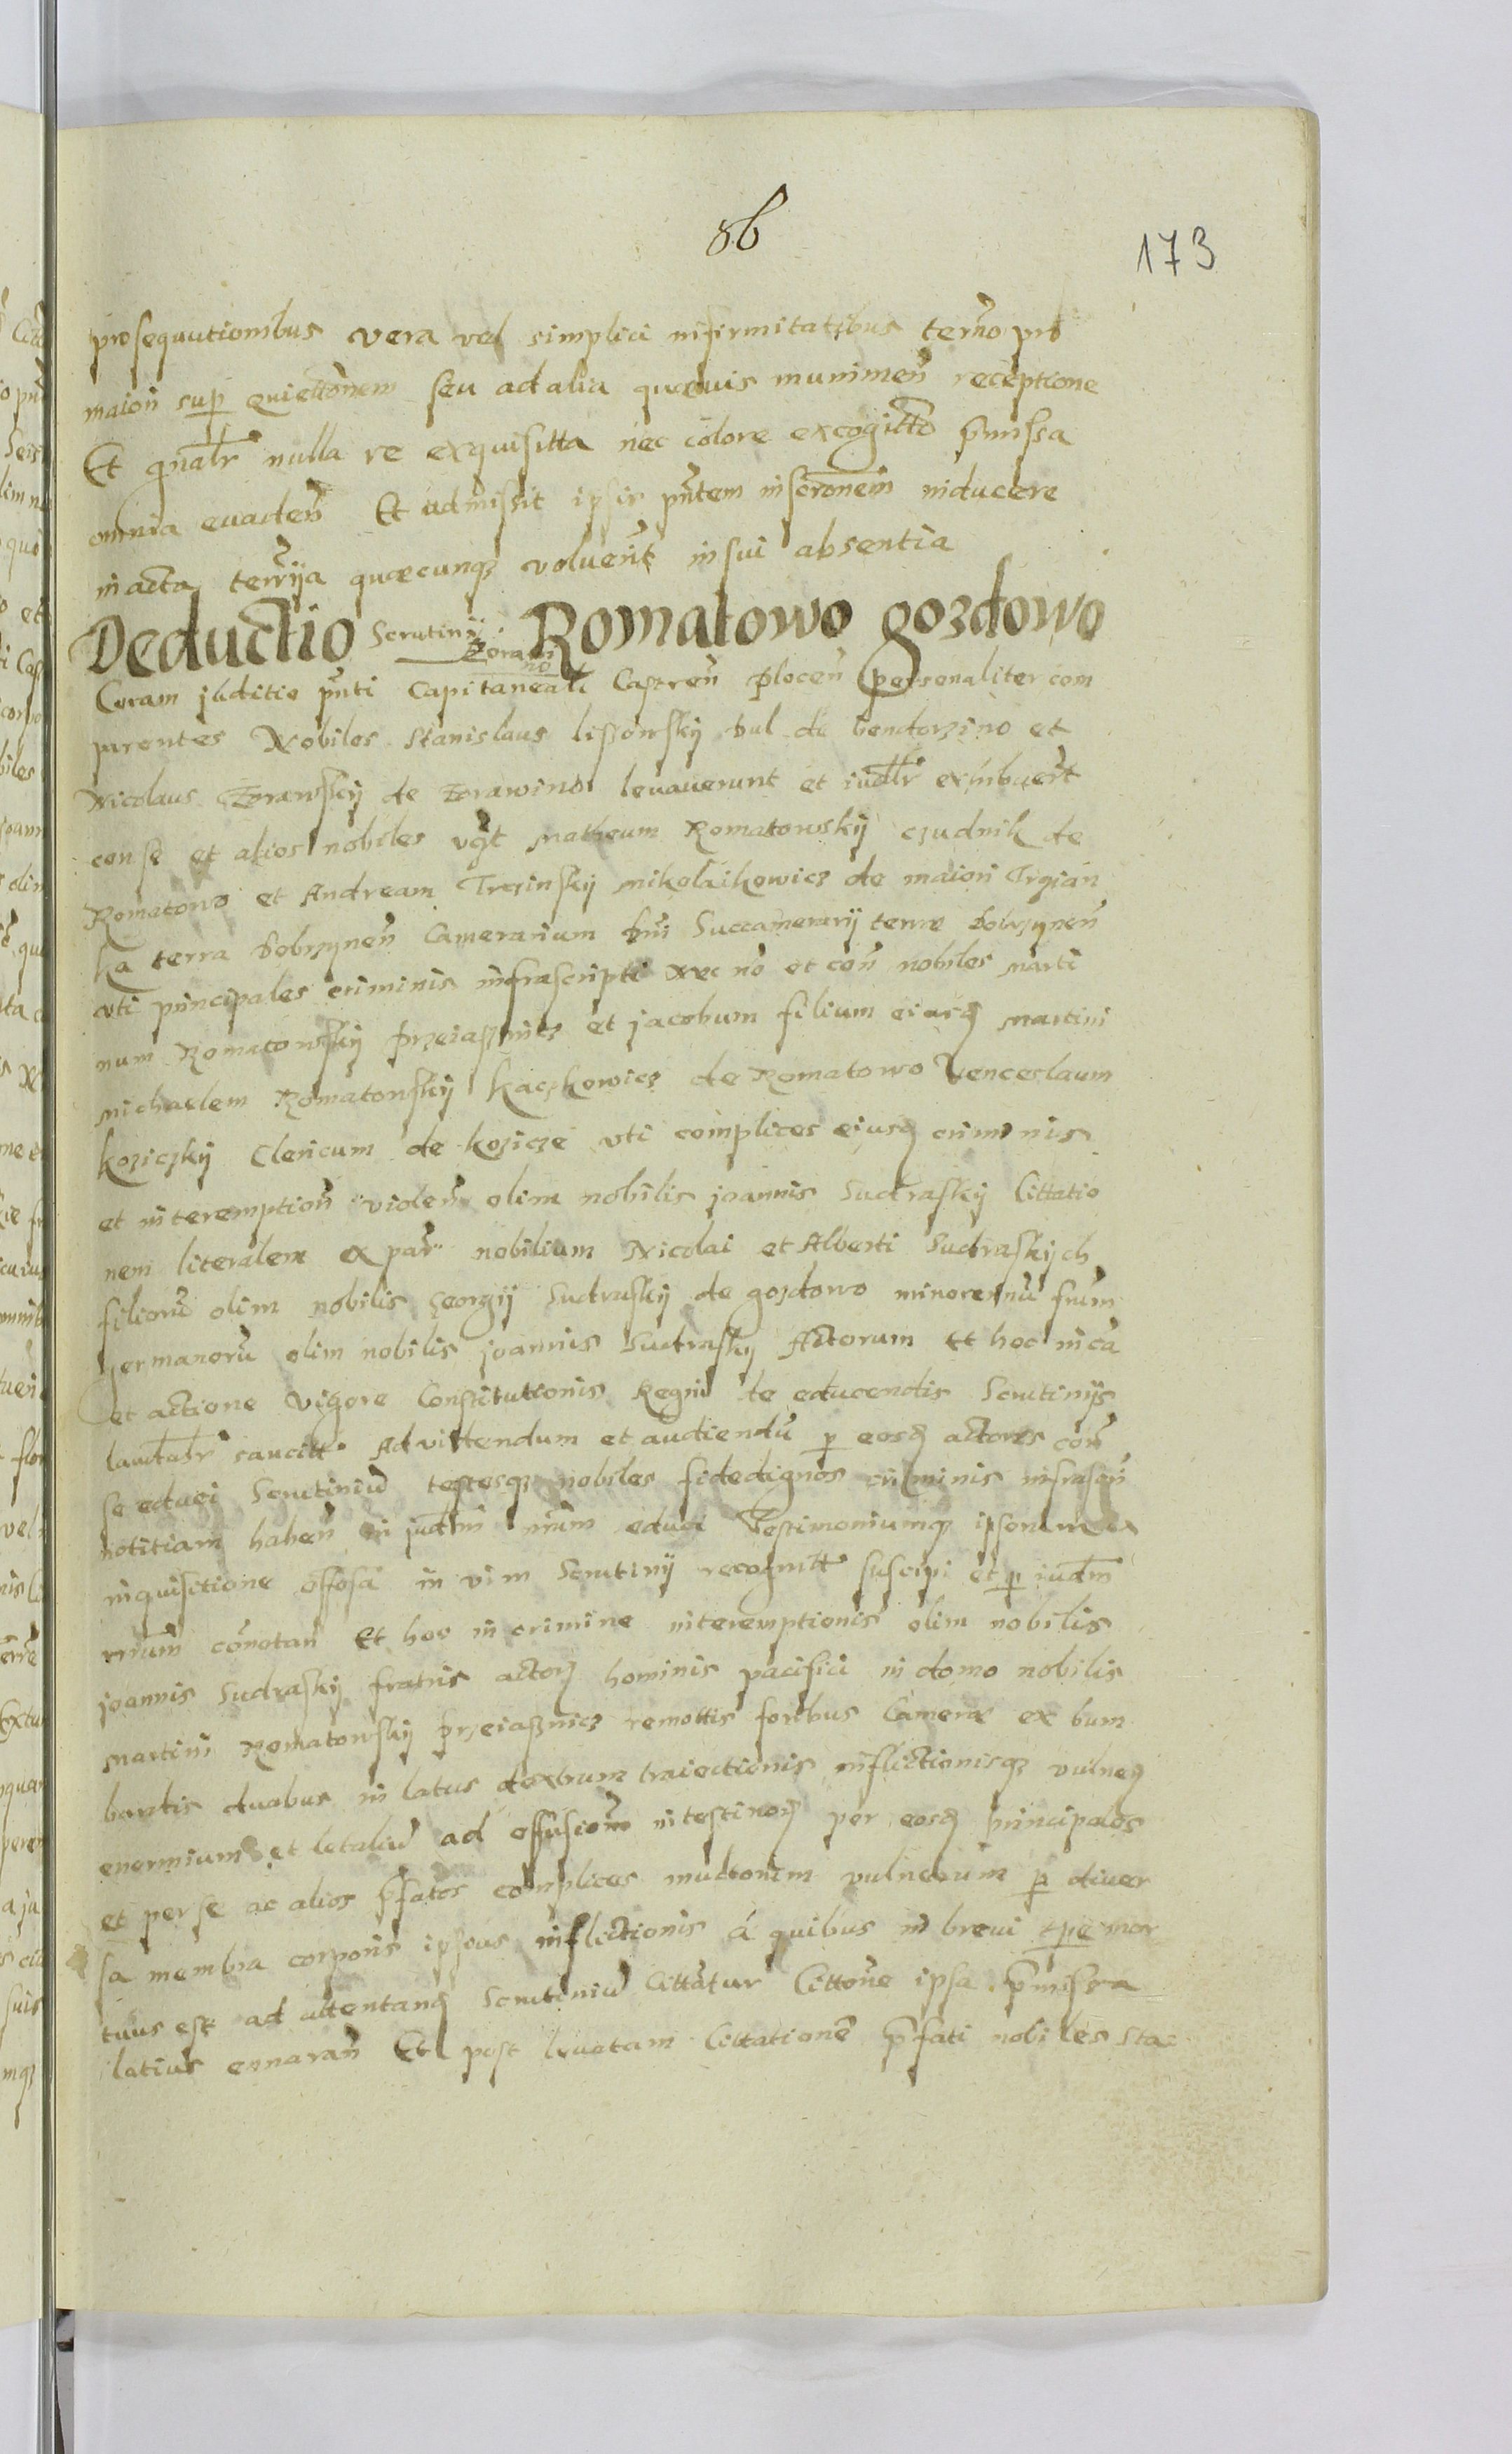 86
173
prosequutionibus vera vel simplici infirmitatibus termo pro
maiori sup quiettonem seu ad alia quævis munimen̄ receptione
Et gnalr nulla re exquisitta nec colore excogitto p̄missa
omnia evaden̄ Et admissit ipsis pn̄tem inscronem inducere
in acta terrīja quæcunq̢ voluerīt in sui absentia
Deductio Scrutinij Romatowo gozdowo
Zorawi
no
Coram juditio pn̄ti Capitaneali Castren̄ plocen̄ personaliter com
parentes Nobiles Stanislaus lissowskij Dul de bendorzino et
Nicolaus Zorawskij de Zorawino levaverunt et iudlr exhibuer̄t
con se et alios nobiles vgt Matheum Romatowskij czudnik de
Romatowo et Andream Trzcinskij Mikolaikowicz de maiori Trzcian
ka terra Dobrzynen̄ Camerarium Dn̄i Succamerarij terræ Dobrzynen̄
uti principales criminis infrascripti nec no et con̄ nobiles Marti
num Romatowskij przeiaznicz et jacobum filium eiusd̢ Martini
Michaelem Romatowskij kaczkowicz de Romatowo Venceslaum
koziczkij Clericum de koziczė uti complices eiusd̢ criminis
et interemption̄ violen̄ olim nobilis joannis Sudraskij Cittatio
nem literalem ex par̄ nobilium Nicolai et Alberti Sudraskijch
filiorū olim nobilis georgij Sudraskij de gozdowo minorennū frum
germanorū olim nobilis joannis Sudraskij Actorum Et hoc in ca
et actione vigore Constitutionis Regni de educendis Scrutinijs
laudablr sancitt Ad videndum et audiendū p eosd̢ actores con̄
se educi Scrutiniū testesq̢ nobiles fidedignos criminis infrascri
notitiam haben̄ in judm̄ nrūm educi Testimoniumq̢ ipsorum ex
inquisitione in vim Scrutinij recognitt suscipi et p iudm̄
nrūm conotan̄ Et hoc in crimine interemptionis olim nobilis
joannis Sudraskij fratris actor̢ hominis pacifici in domo nobilis
Martini Romatowskij przeiaznicz remottis foribus Cameræ ex bum
bardis duabus in latus dextrum traiectionis inflictionisq̢ vulner̢
enormium et letaliū ad effusiōm intestinor̢ per eosd̢ principales
et per se ac alios p̄fatos complices vulnerum p diver
sa membra corporis ipsius inflictionis á quibus in brevi tpe mor
tuus est ad attentand̢ Scrutiniū Cittatur Cittone ipsa p̄missa
latius ennaran̄ Et post levatam Cittationē p̄fati nobiles Sta